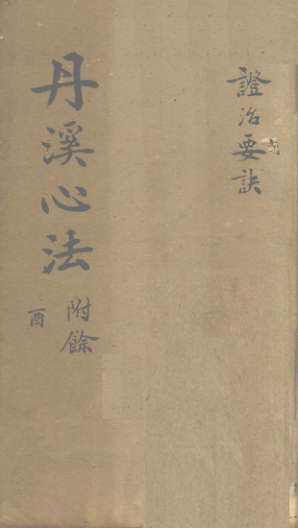 證治要訣
丹溪心法
附餘
酉